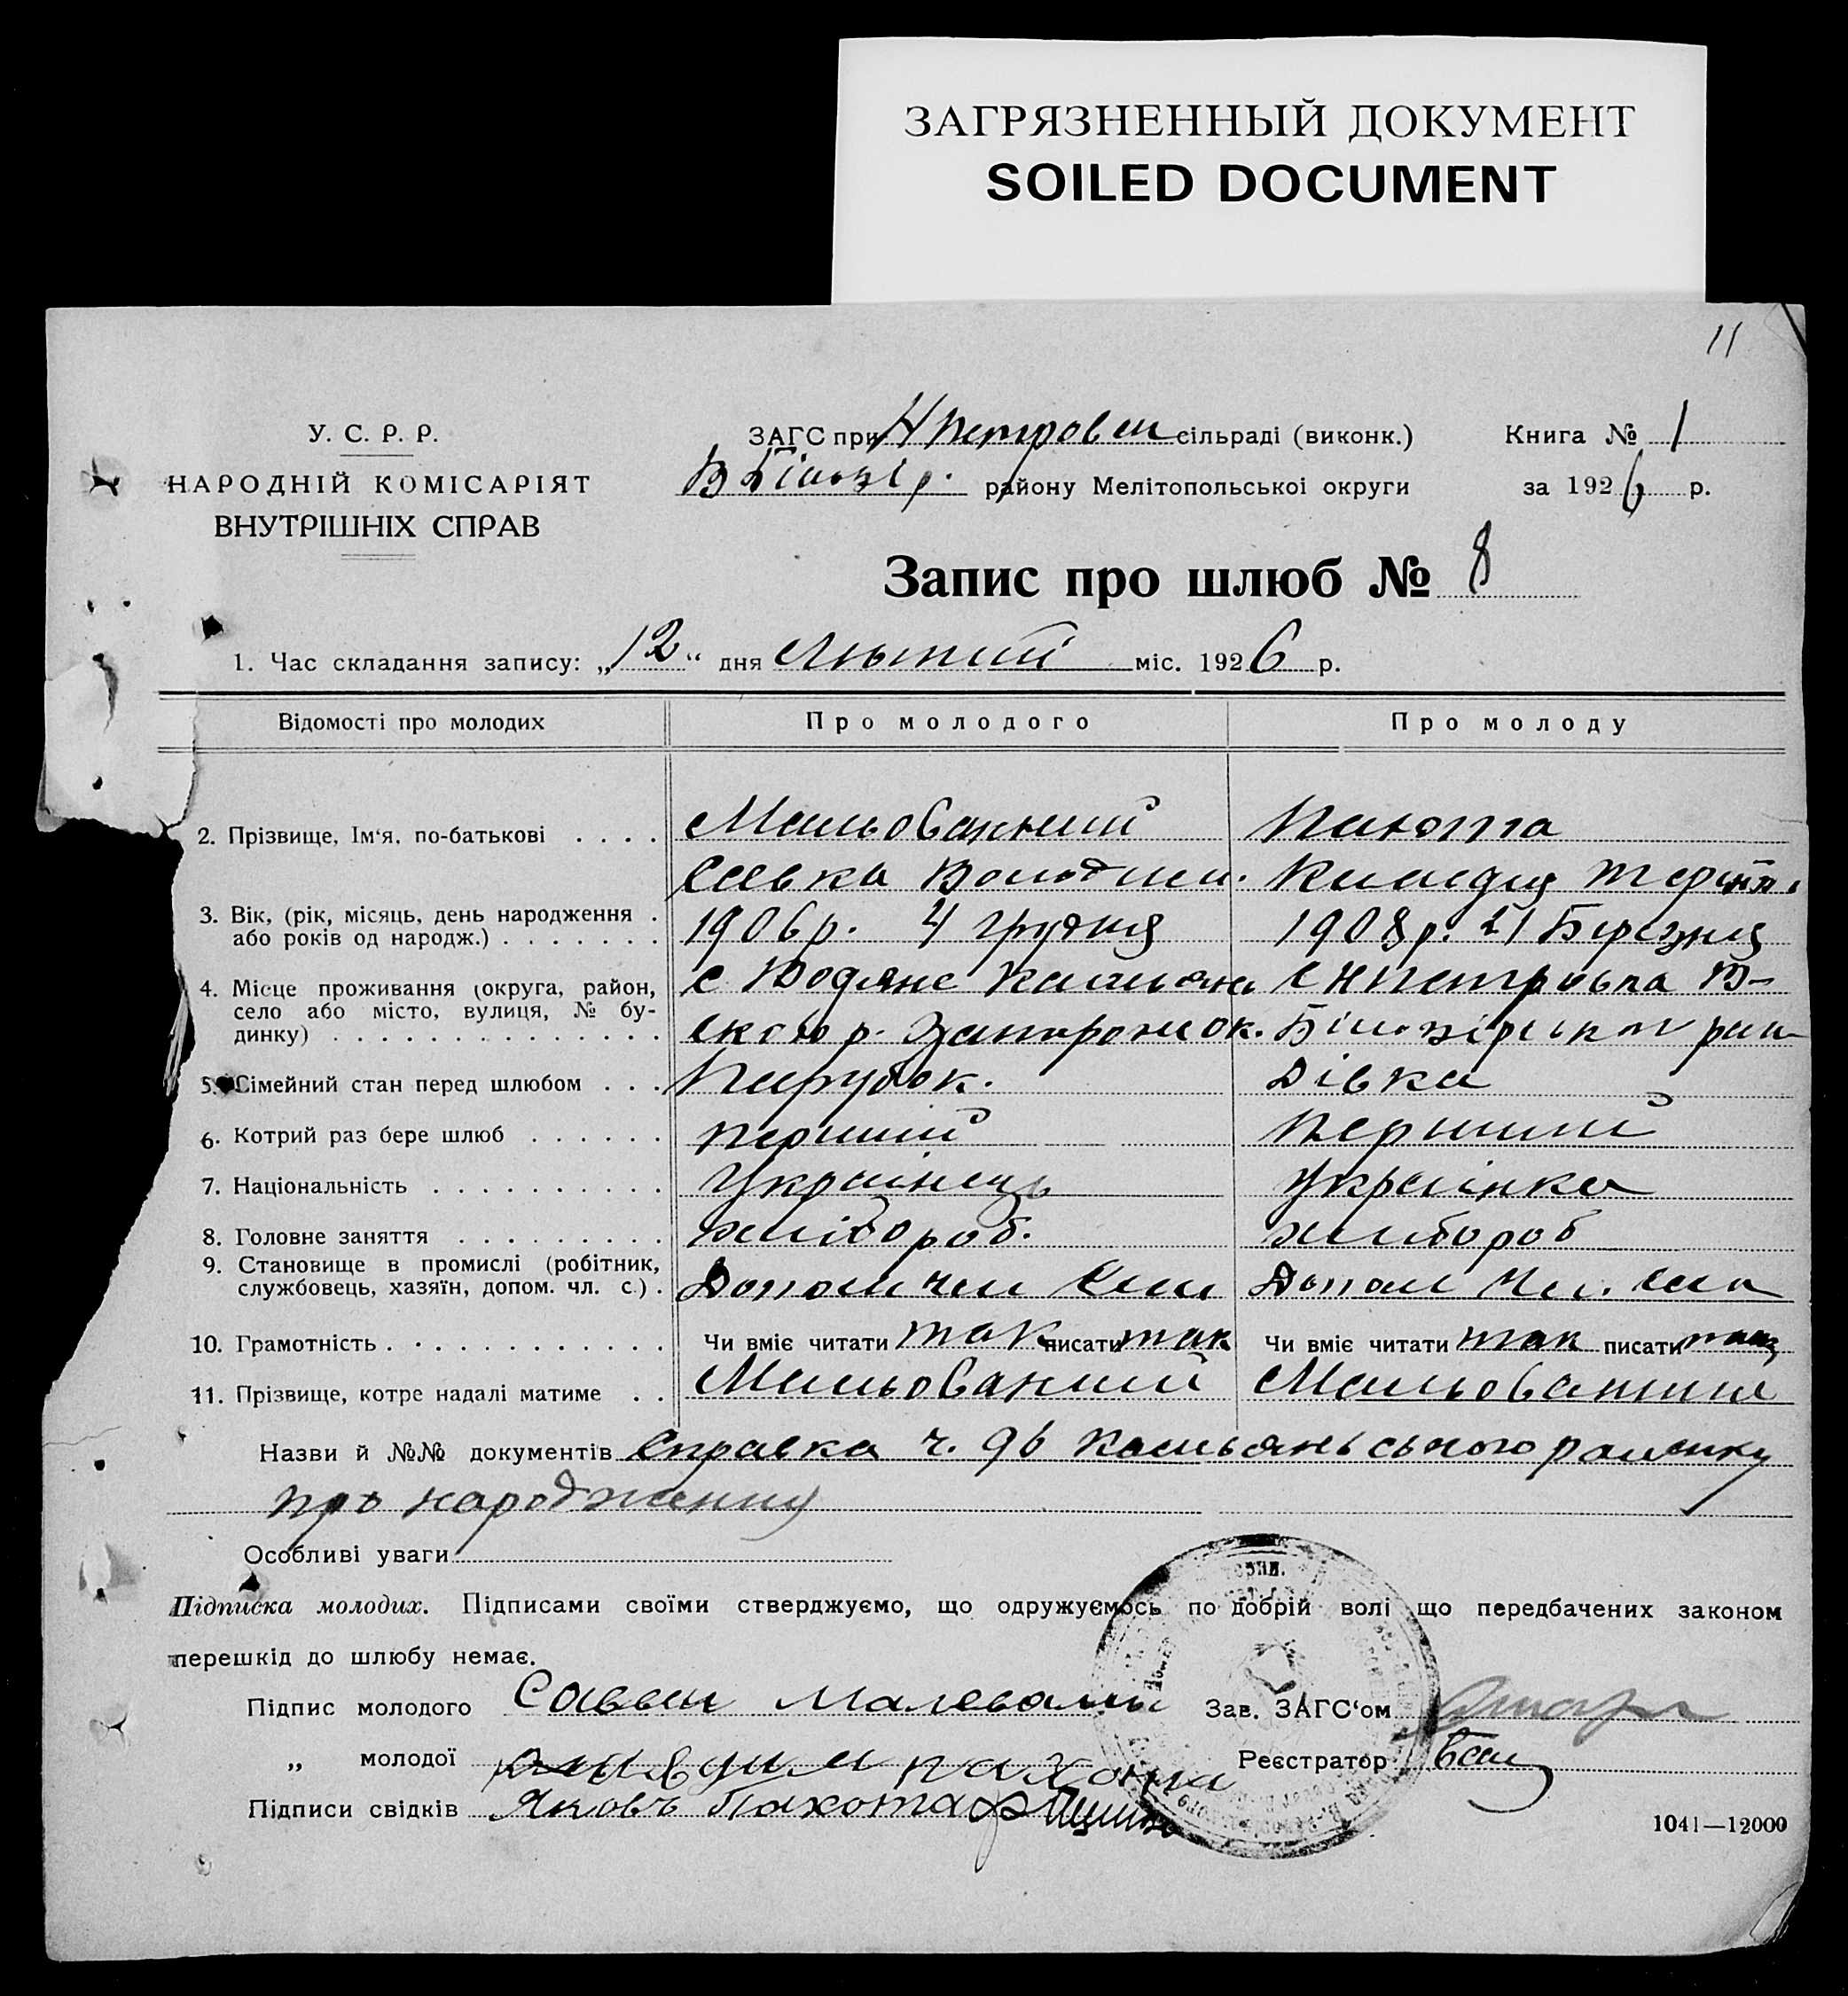 ЗАГРЯЗНЕННЫЙ ДОКУМЕНТ
SOILED DOCUMENT
11
У. С. Р. Р.
НАРОДНІЙ КОМІСАРІЯТ
ВНУТРІШНІХ СПРАВ
ЗАГС при Н Петровск сільраді (виконк.)
В Білозір. району Мелітопольської округи
Книга № 1
за 1926 р.
Запис про шлюб № 8
1. Час складання запису: „12“ дня Лютий міс. 1926 р.
Відомості про молодих Про молодого Про молоду
2. Прізвище, Ім'я, по-батькові . . . . Мальований Пахота
Савка Володим. Клавдія
3. Вік, (рік, місяць, день народження . 1906 р. 4 грудня 1908 р. 21 Березня
або років од народж.) . . . . . . .
4. Місце проживання (округа, район, с Водяне Камьян С Н Петровка В-
село або місто, вулиця, № бу-
динку) . . . . . . . . . . . . . . ського р. Запорож ок. Білозірськог рай
5. Сімейний стан перед шлюбом . . . Парубок. Дівка
6. Котрий раз бере шлюб . . . . . . перший Перший
7. Національність . . . . . . . . . . Українець Українка
8. Головне заняття . . . . . . . . . хлібороб. хлібороб
9. Становище в промислі (робітник,
службовець, хазяїн, допом. чл. с.) . Допом чл Сім Допом Чл. сім
10. Грамотність . . . . . . . . . . . . Чи вміє читати так писати так Чи вміє читати так писати так
11. Прізвище, котре надалі матиме . . Мальований Мальована
Назви й №№ документів Справка ч. 96 Камьянського
про народження
Особливі уваги
Підписка молодих. Підписами своїми стверджуємо, що одружуємось по добрій волі що передбачених законом
перешкід до шлюбу немає.
Підпис молодого Зав. ЗАГС'ом
„ молодої пахота Реєстратор
Підписи свідків Яковъ Пахота
1041—12000